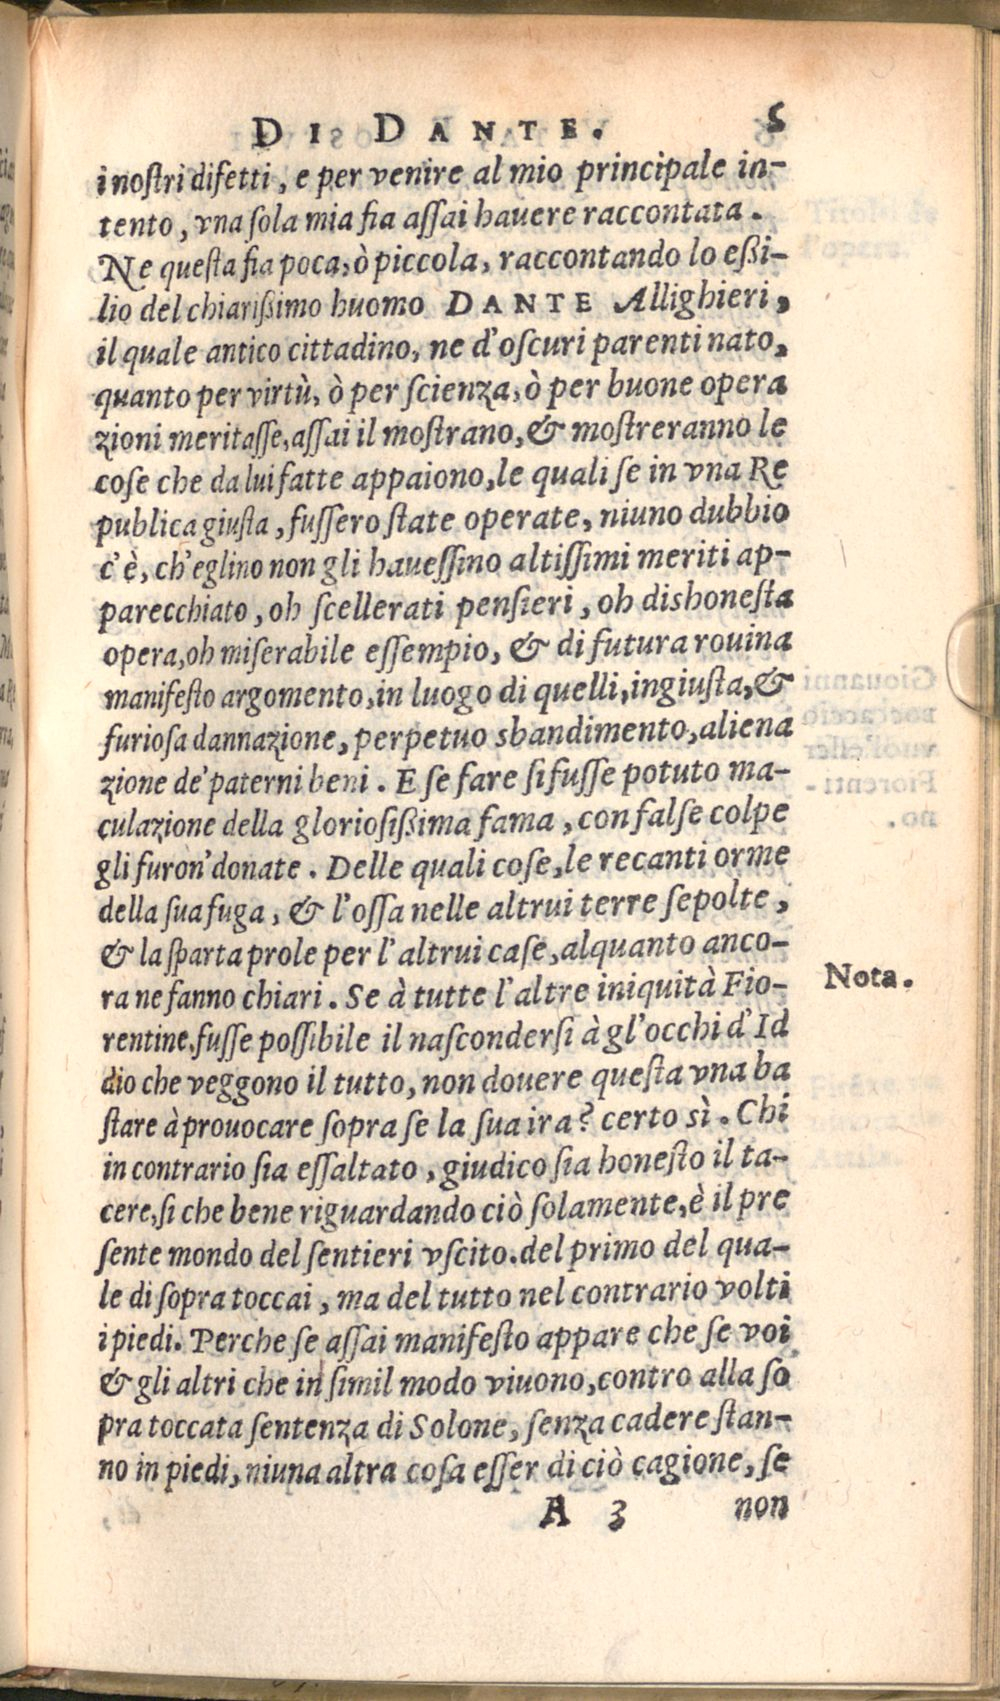 DI DANTE. 5
i noſtri difetti, e per venire al mio principale in-
tento, vna ſola mia fia aſſai hauere raccontata.
Ne queſta fia poca, ò piccola, raccontando lo eßi-
lio del chiarißimo huomo DANTE Allighieri,
il quale antico cittadino, ne d'oſcuri parenti nato,
quanto per virtù, ò per ſcienza, ò per buone opera
zioni meritaſſe, aſſai il moſtrano, & moſtreranno le
coſe che da lui fatte appaiono, le quali ſe in vna Re
publica giuſta, fuſſero ſtate operate, niuno dubbio
c'è, ch'eglino non gli haueſſino altiſſimi meriti ap-
parecchiato, oh ſcellerati penſieri, oh dishoneſta
opera, oh miſerabile eſſempio, & di futura rouina
manifeſto argomento, in luogo di quelli, ingiuſta, &
furioſa dannazione, perpetuo sbandimento, aliena
zione de' paterni beni. E ſe fare ſi fuſſe potuto ma-
culazione della glorioſißima fama, con falſe colpe
gli furon' donate. Delle quali coſe, le recanti orme
della ſua fuga, & l'oſſa nelle altrui terre ſepolte,
& la ſparta prole per l'altrui caſe, alquanto anco-
ra ne fanno chiari. Se à tutte l'altre iniquità Fio-
Nota.
rentine, fuſſe poſſibile il naſconderſi à gl'occhi d'Id
dio che veggono il tutto, non douere queſta vna ba
ſtare à prouocare ſopra ſe la ſua ira? certo sì. Chi
in contrario ſia eſſaltato, giudico ſia honeſto il ta-
cere, ſi che bene riguardando ciò ſolamente, è il pre
ſente mondo del ſentieri vſcito. del primo del qua-
le di ſopra toccai, ma del tutto nel contrario volti
i piedi. Perche ſe aſſai manifeſto appare che ſe voi
& gli altri che in ſimil modo viuono, contro alla ſo
pra toccata ſentenza di Solone, ſenza cadere ſtan-
no in piedi, niuna altra coſa eſſer di ciò cagione, ſe
A 3 non